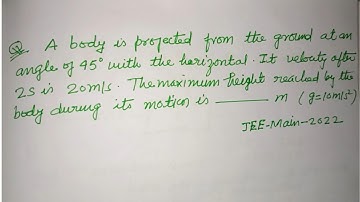 Q. A body is projected from the ground at an
angle of 45° with the horizontal. It velocity after
2s is 20m/s. The maximum height reached by the
body during its motion is ______ m (g=10m/s²)
JEE-Main-2022